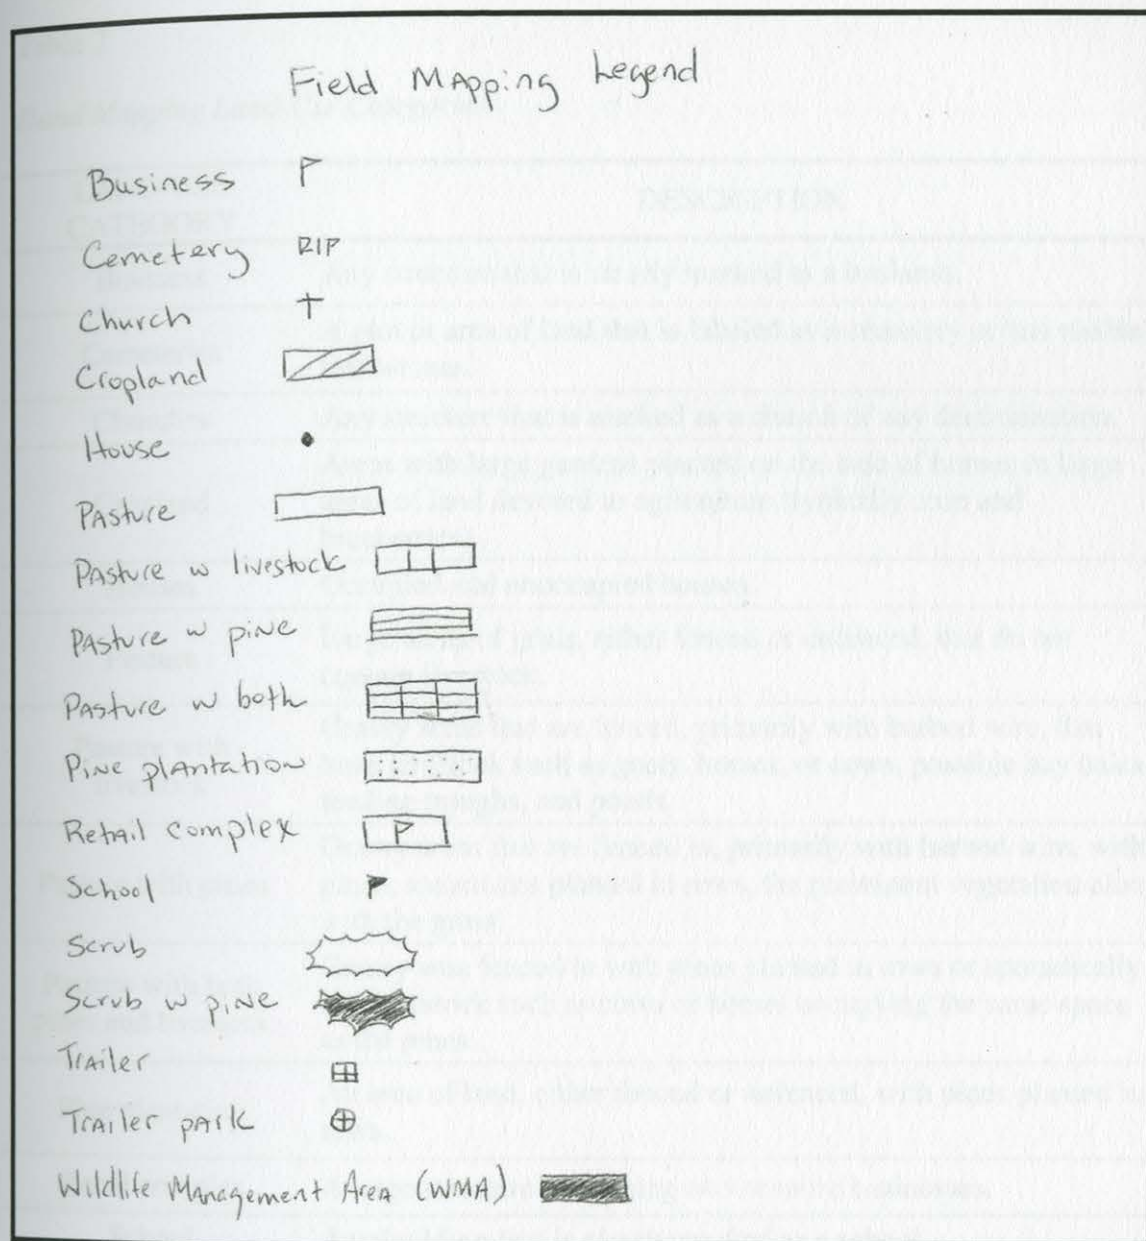 Field Mapping Legend
Business
Cemetery RIP
Church
Cropland
House
Pasture
Pasture w livestock
Pasture w pine
Pasture w both
Pine plantation
Retail complex
School
Scrub
Scrub w pine
Trailer
Trailer park
Wildlife Management Area (WMA)